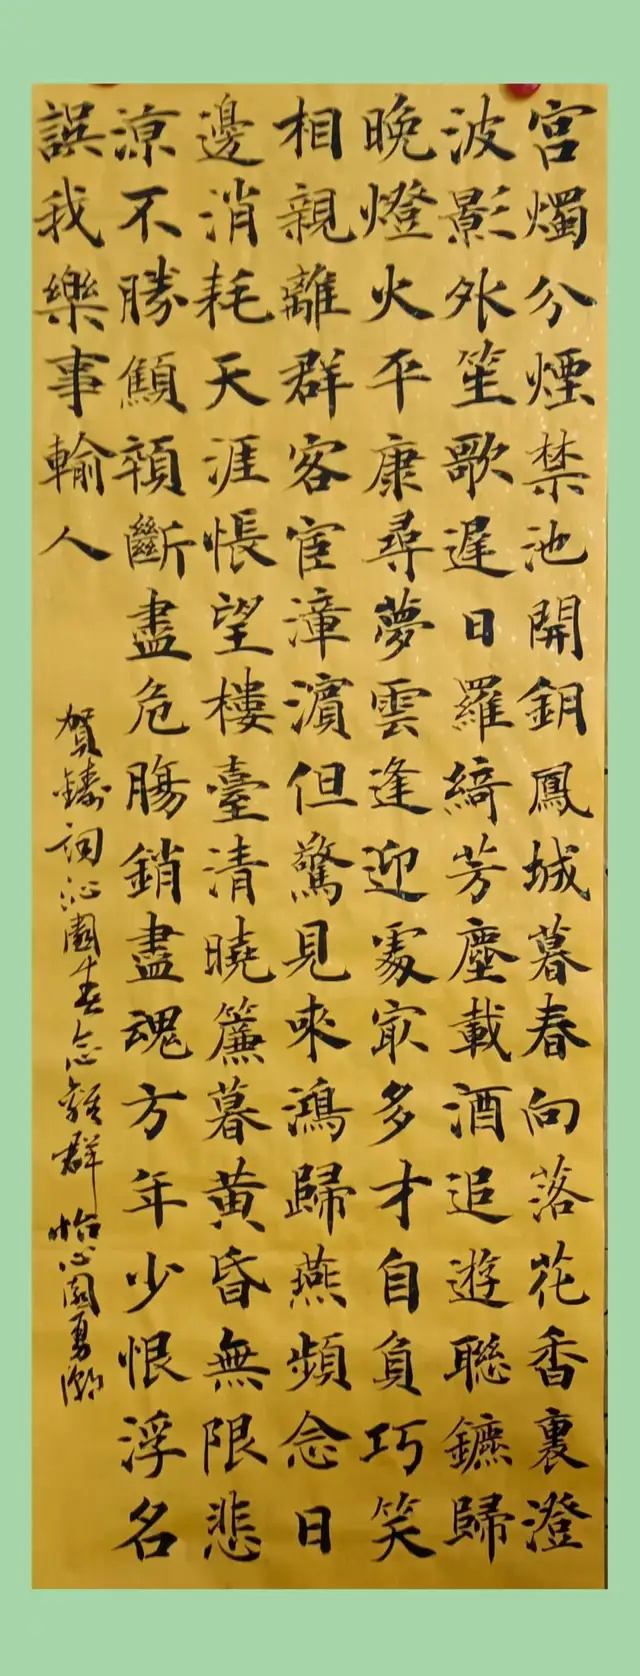 宮燭分煙禁池開鈅鳳城暮春向落花香裏澄
波影外笙歌遲日羅綺芳塵載酒追遊聯鑣歸
晚燈火平康尋夢雲逢迎處㝡多才自負巧笑
相親離群客宦漳濱但驚見來鴻歸燕頻念日
邊消耗天涯悵望樓臺清曉簾暮黃昏無限悲
涼不勝顦顇斷盡危腸銷盡魂方年少恨浮名
誤我樂事輸人
賀鑄詞沁園春念離群 怡心園勇